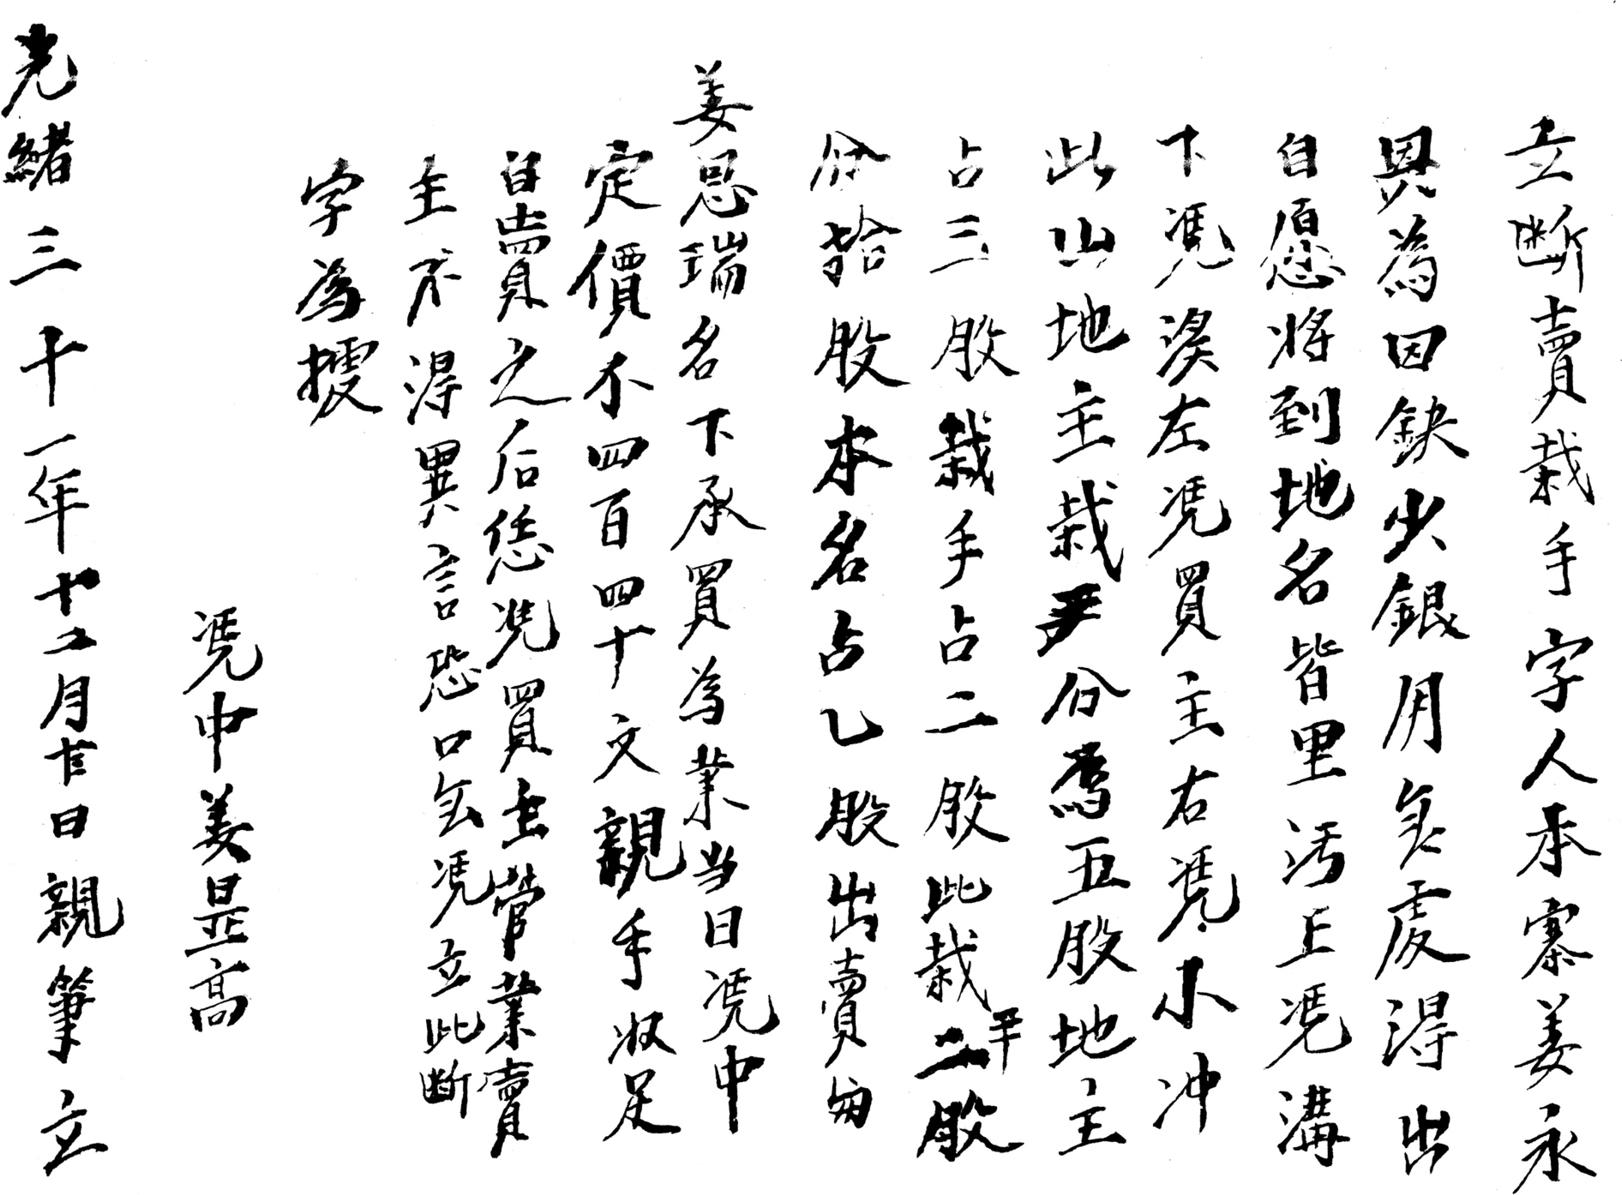 立断賣栽手字人本寨姜永
興為因缺少銀用無處得出
自愿將到地名皆里污上凴溝
下凴溪左凴買主右凴小冲
此山地主栽手分為五股地主
占三股栽手占二股此栽手二股
分拾股本名占乙股出賣與
姜恩瑞名下承買為業当日凴中
定價不四百四十文親手收足
自賣之后恁凴買主管業賣
主不得異言恐口無凴立此断
字為據
凴中姜昰高
光緒三十一年十二月廿日親筆立